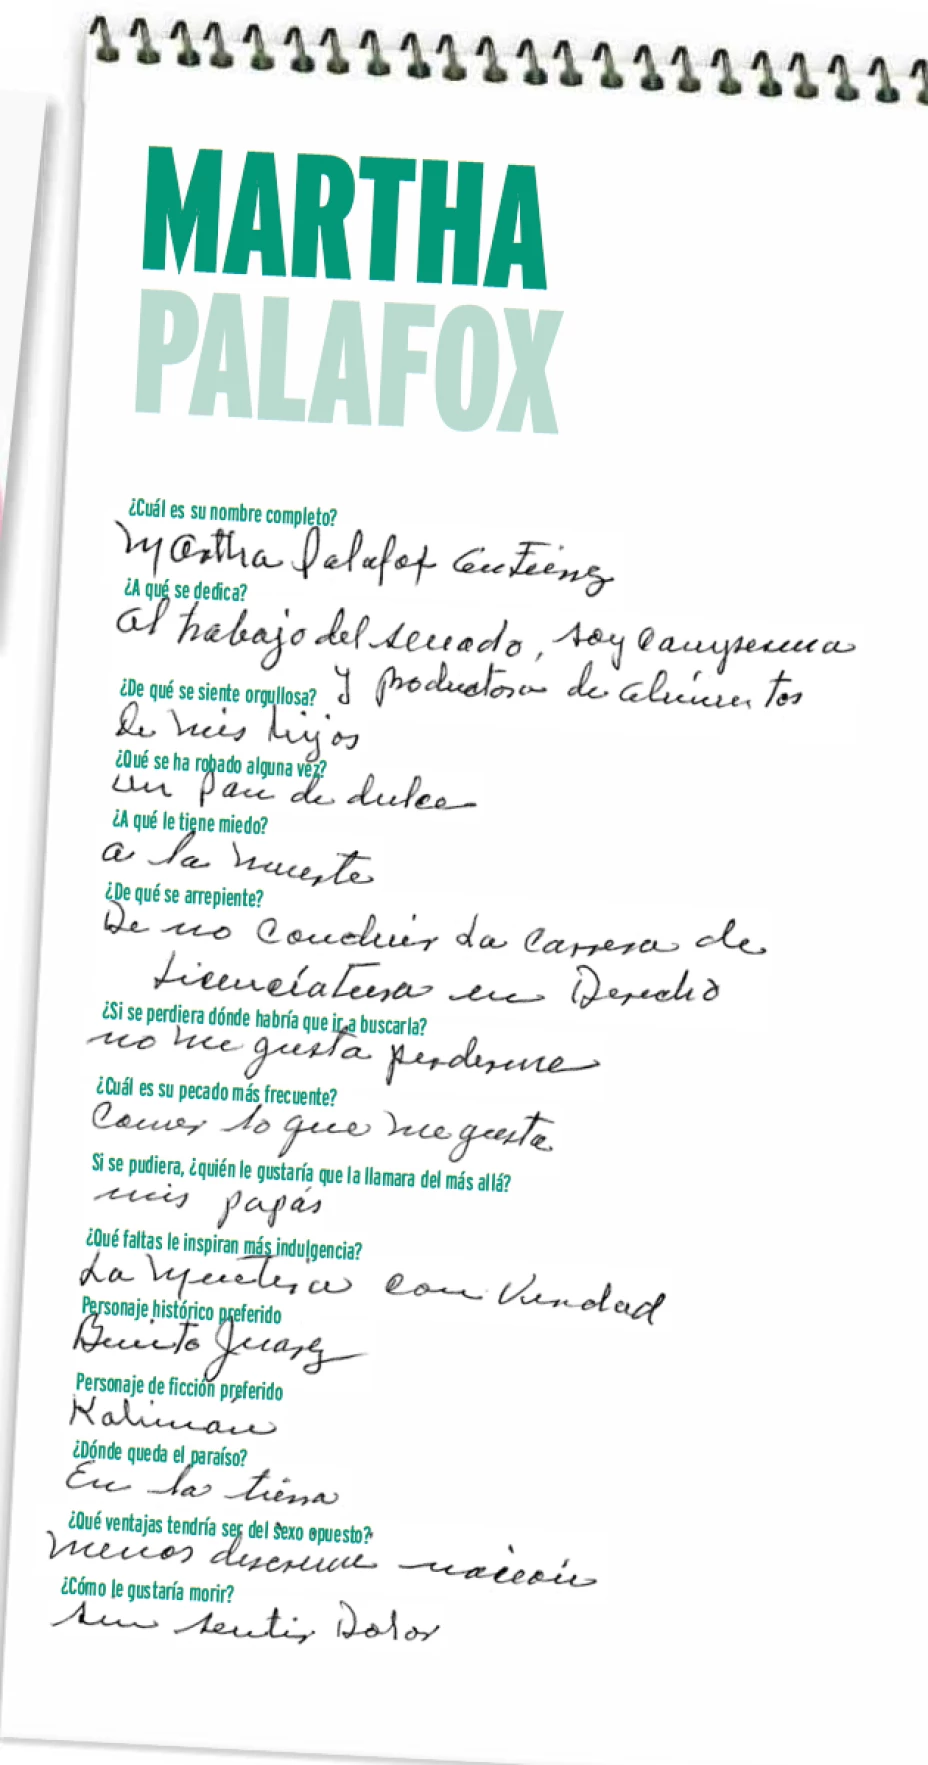 MARTHA
PALAFOX
¿Cuál es su nombre completo?
Martha Palafox Gutiérrez
¿A qué se dedica?
al trabajo del senado, soy campesina
y productora de alimentos
¿De qué se siente orgullosa?
De mis hijos
¿Qué se ha robado alguna vez?
un pan de dulce
¿A qué le tiene miedo?
a la muerte
¿De qué se arrepiente?
De no concluir La Carrera de
Licenciatura en Derecho
¿Si se perdiera dónde habría que ir a buscarla?
no me gusta perderme
¿Cuál es su pecado más frecuente?
Comer lo que me gusta
Si se pudiera, ¿quién le gustaría que la llamara del más allá?
mis papás
¿Qué faltas le inspiran más indulgencia?
La Mentira con Verdad
Personaje histórico preferido
Benito Juarez
Personaje de ficción preferido
Kalimán
¿Dónde queda el paraíso?
En la tierra
¿Qué ventajas tendría ser del sexo opuesto?
menos discriminación
¿Cómo le gustaría morir?
sin sentir Dolor